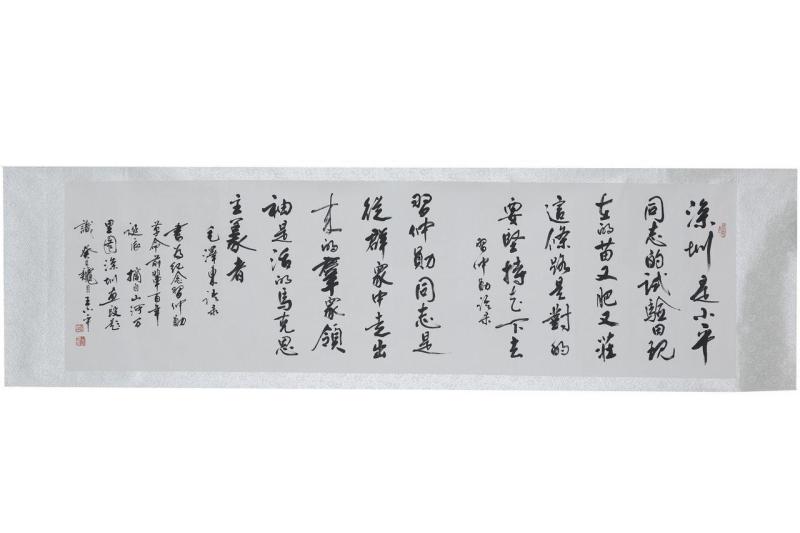 深圳是小平
同志的試驗田現
在的苗又肥又莊
這條路是對的
要堅持走下去
習仲勛語录
習仲勛同志是
從群眾中走出
来的羣众領
袖是活的馬克思
主義者
毛澤東語录
書为纪念習仲勛
革命前輩百年
诞辰 摘自山河万
里圖深圳画段題
識 癸巳 月 王小平